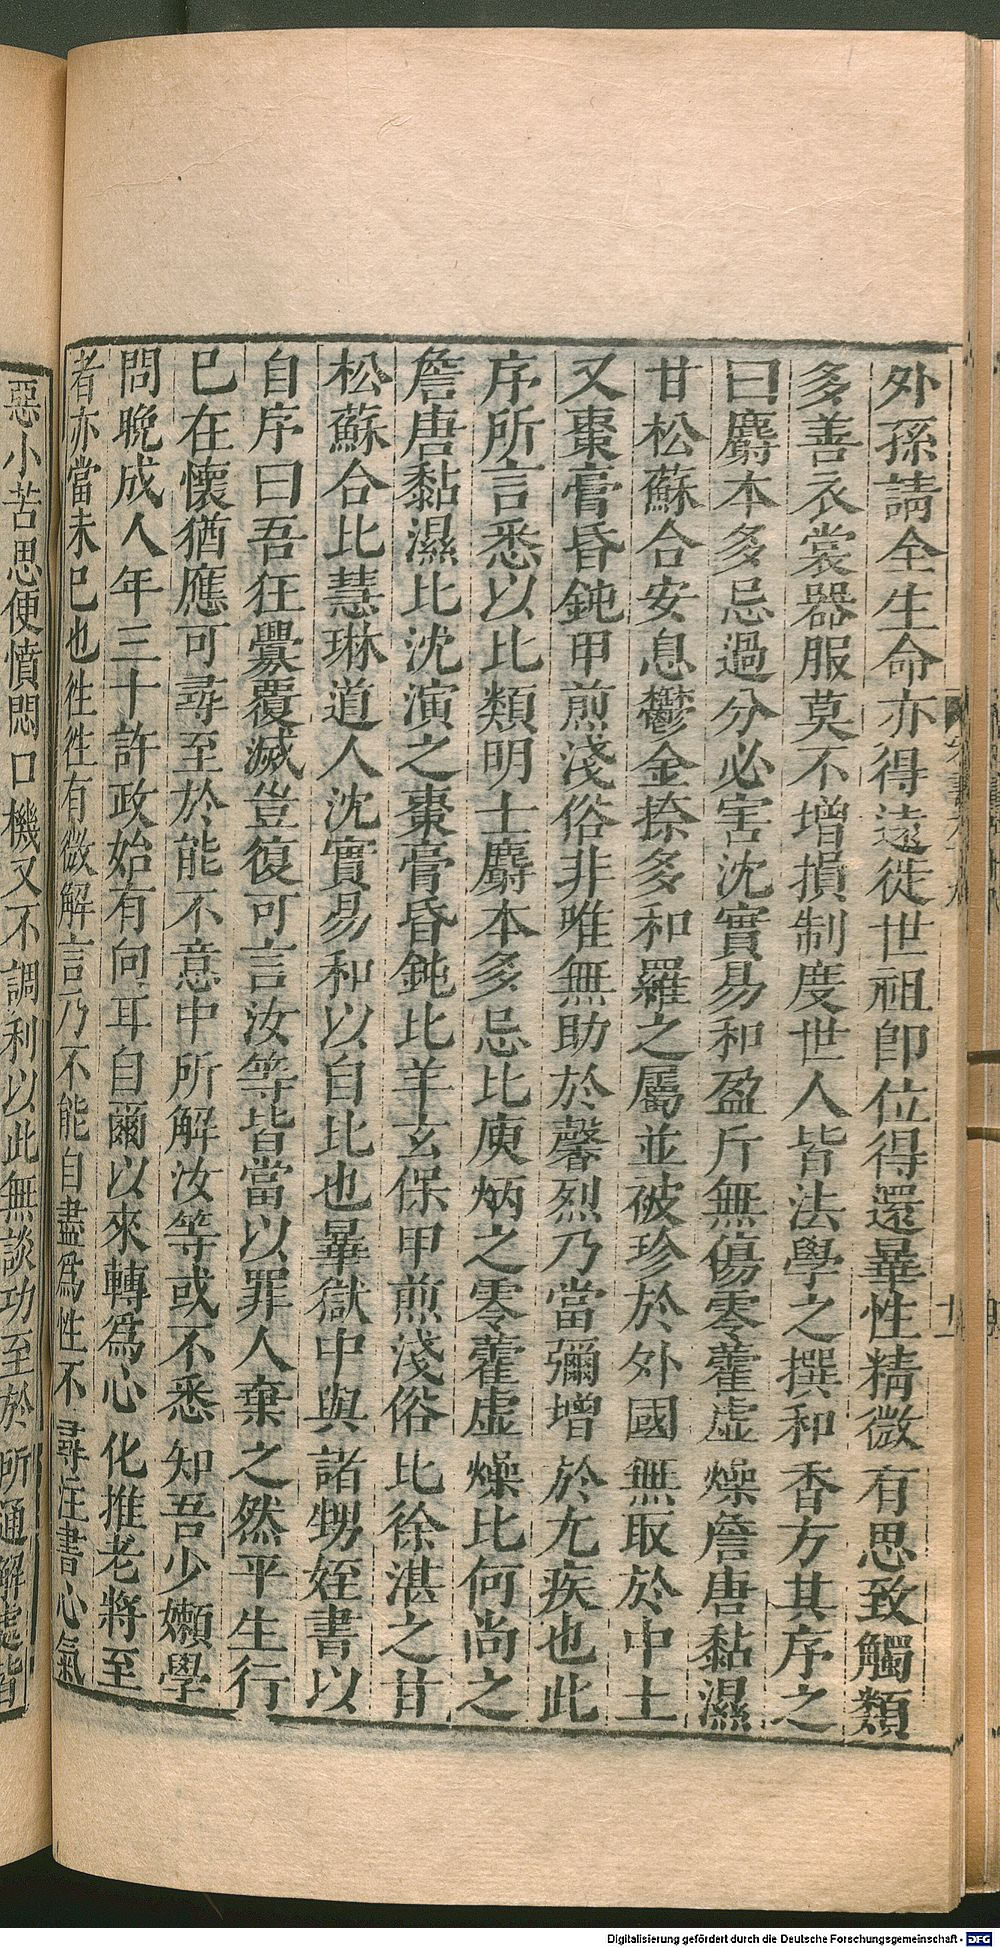 外孫請全生命亦得遠徙世祖即位得還曅性精微有思致觸類
多善衣裳器服莫不增損制度世人皆法學之撰和香方其序之
曰麝本多忌過分必害沈實易和盈斤無傷零藿虛燥詹唐黏濕
甘松蘇合安息鬱金㮈多和羅之屬並被珍於外國無取於中土
又棗膏昏鈍甲煎淺俗非唯無助於馨烈乃當彌增於尤疾也此
序所言悉以比類明士麝本多忌比庾炳之零藿虛燥比何尚之
詹唐黏濕比沈演之棗膏昏鈍比羊玄保甲煎淺俗比徐湛之甘
松蘇合比慧琳道人沈實易和以自比也曅獄中與諸甥姪書以
自序曰吾狂釁覆滅豈復可言汝等皆當以罪人棄之然平生行
巳在懷猶應可尋至於能不意中所解汝等或不悉知吾少嬾學
問晚成人年三十許政始有向耳自爾以來轉爲心化推老將至
者亦當未巳也往往有微解言乃不能自盡爲性不尋注書心氣
惡小苦思便憤悶口機又不調利以此無談功至於所通解處皆
Digitalisierung gefördert durch die Deutsche Forschungsgemeinschaft - DFG